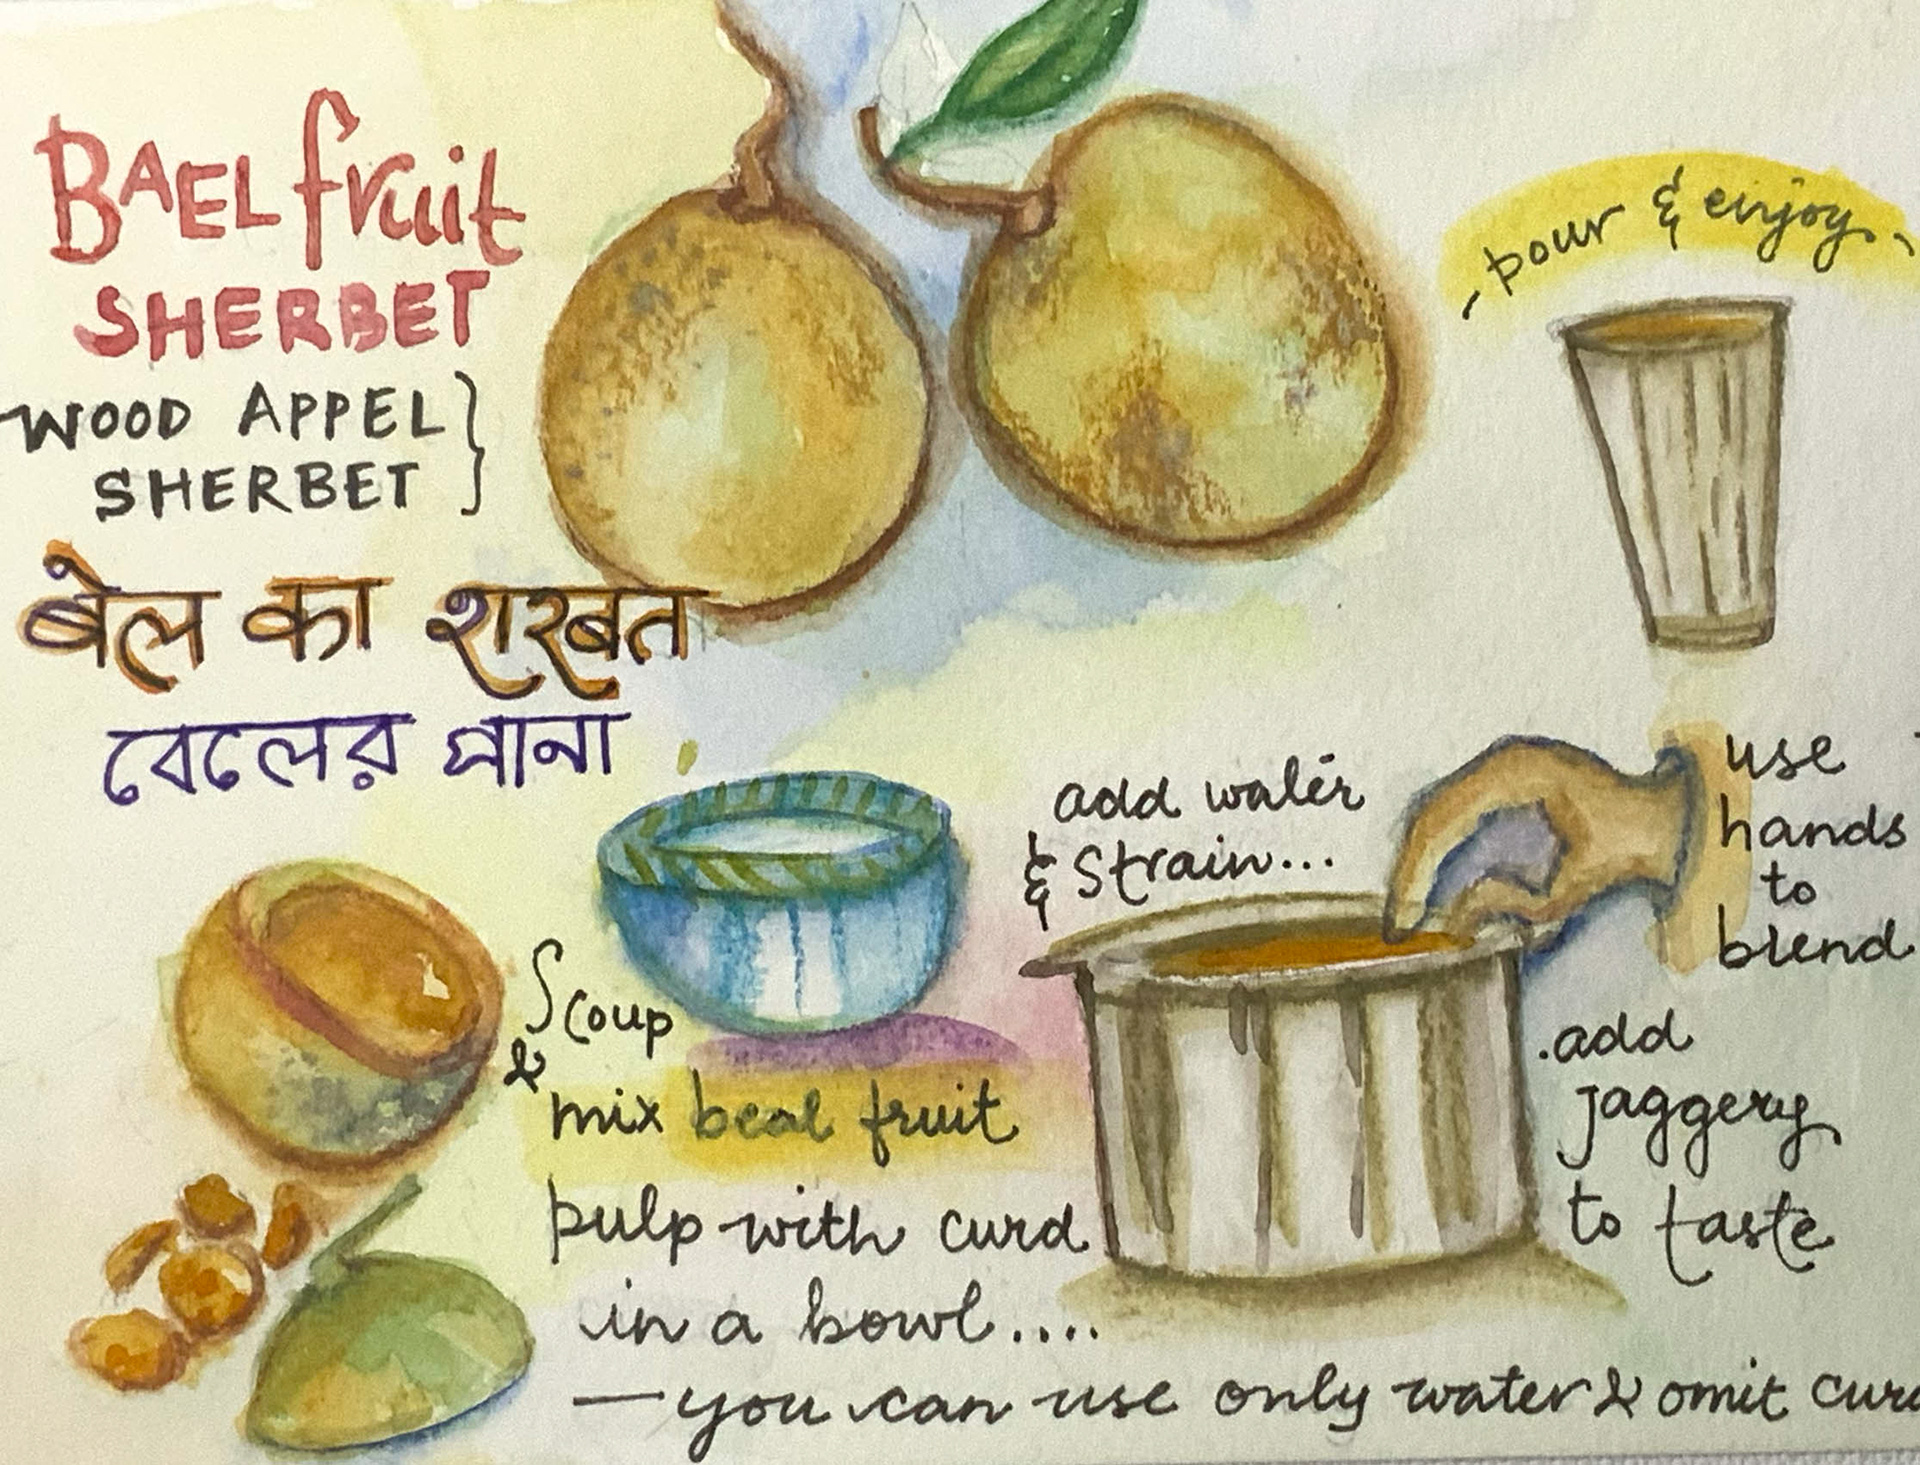 BAEL fruit
SHERBET
WOOD APPEL
SHERBET
बेल का शरबत
বেলের পানা
- pour & enjoy -
Scoup
&
mix beal fruit
pulp with curd
in a bowl....
add water
& strain...
use
hands
to
blend
.add
jaggery
to taste
— you can use only water & omit curd